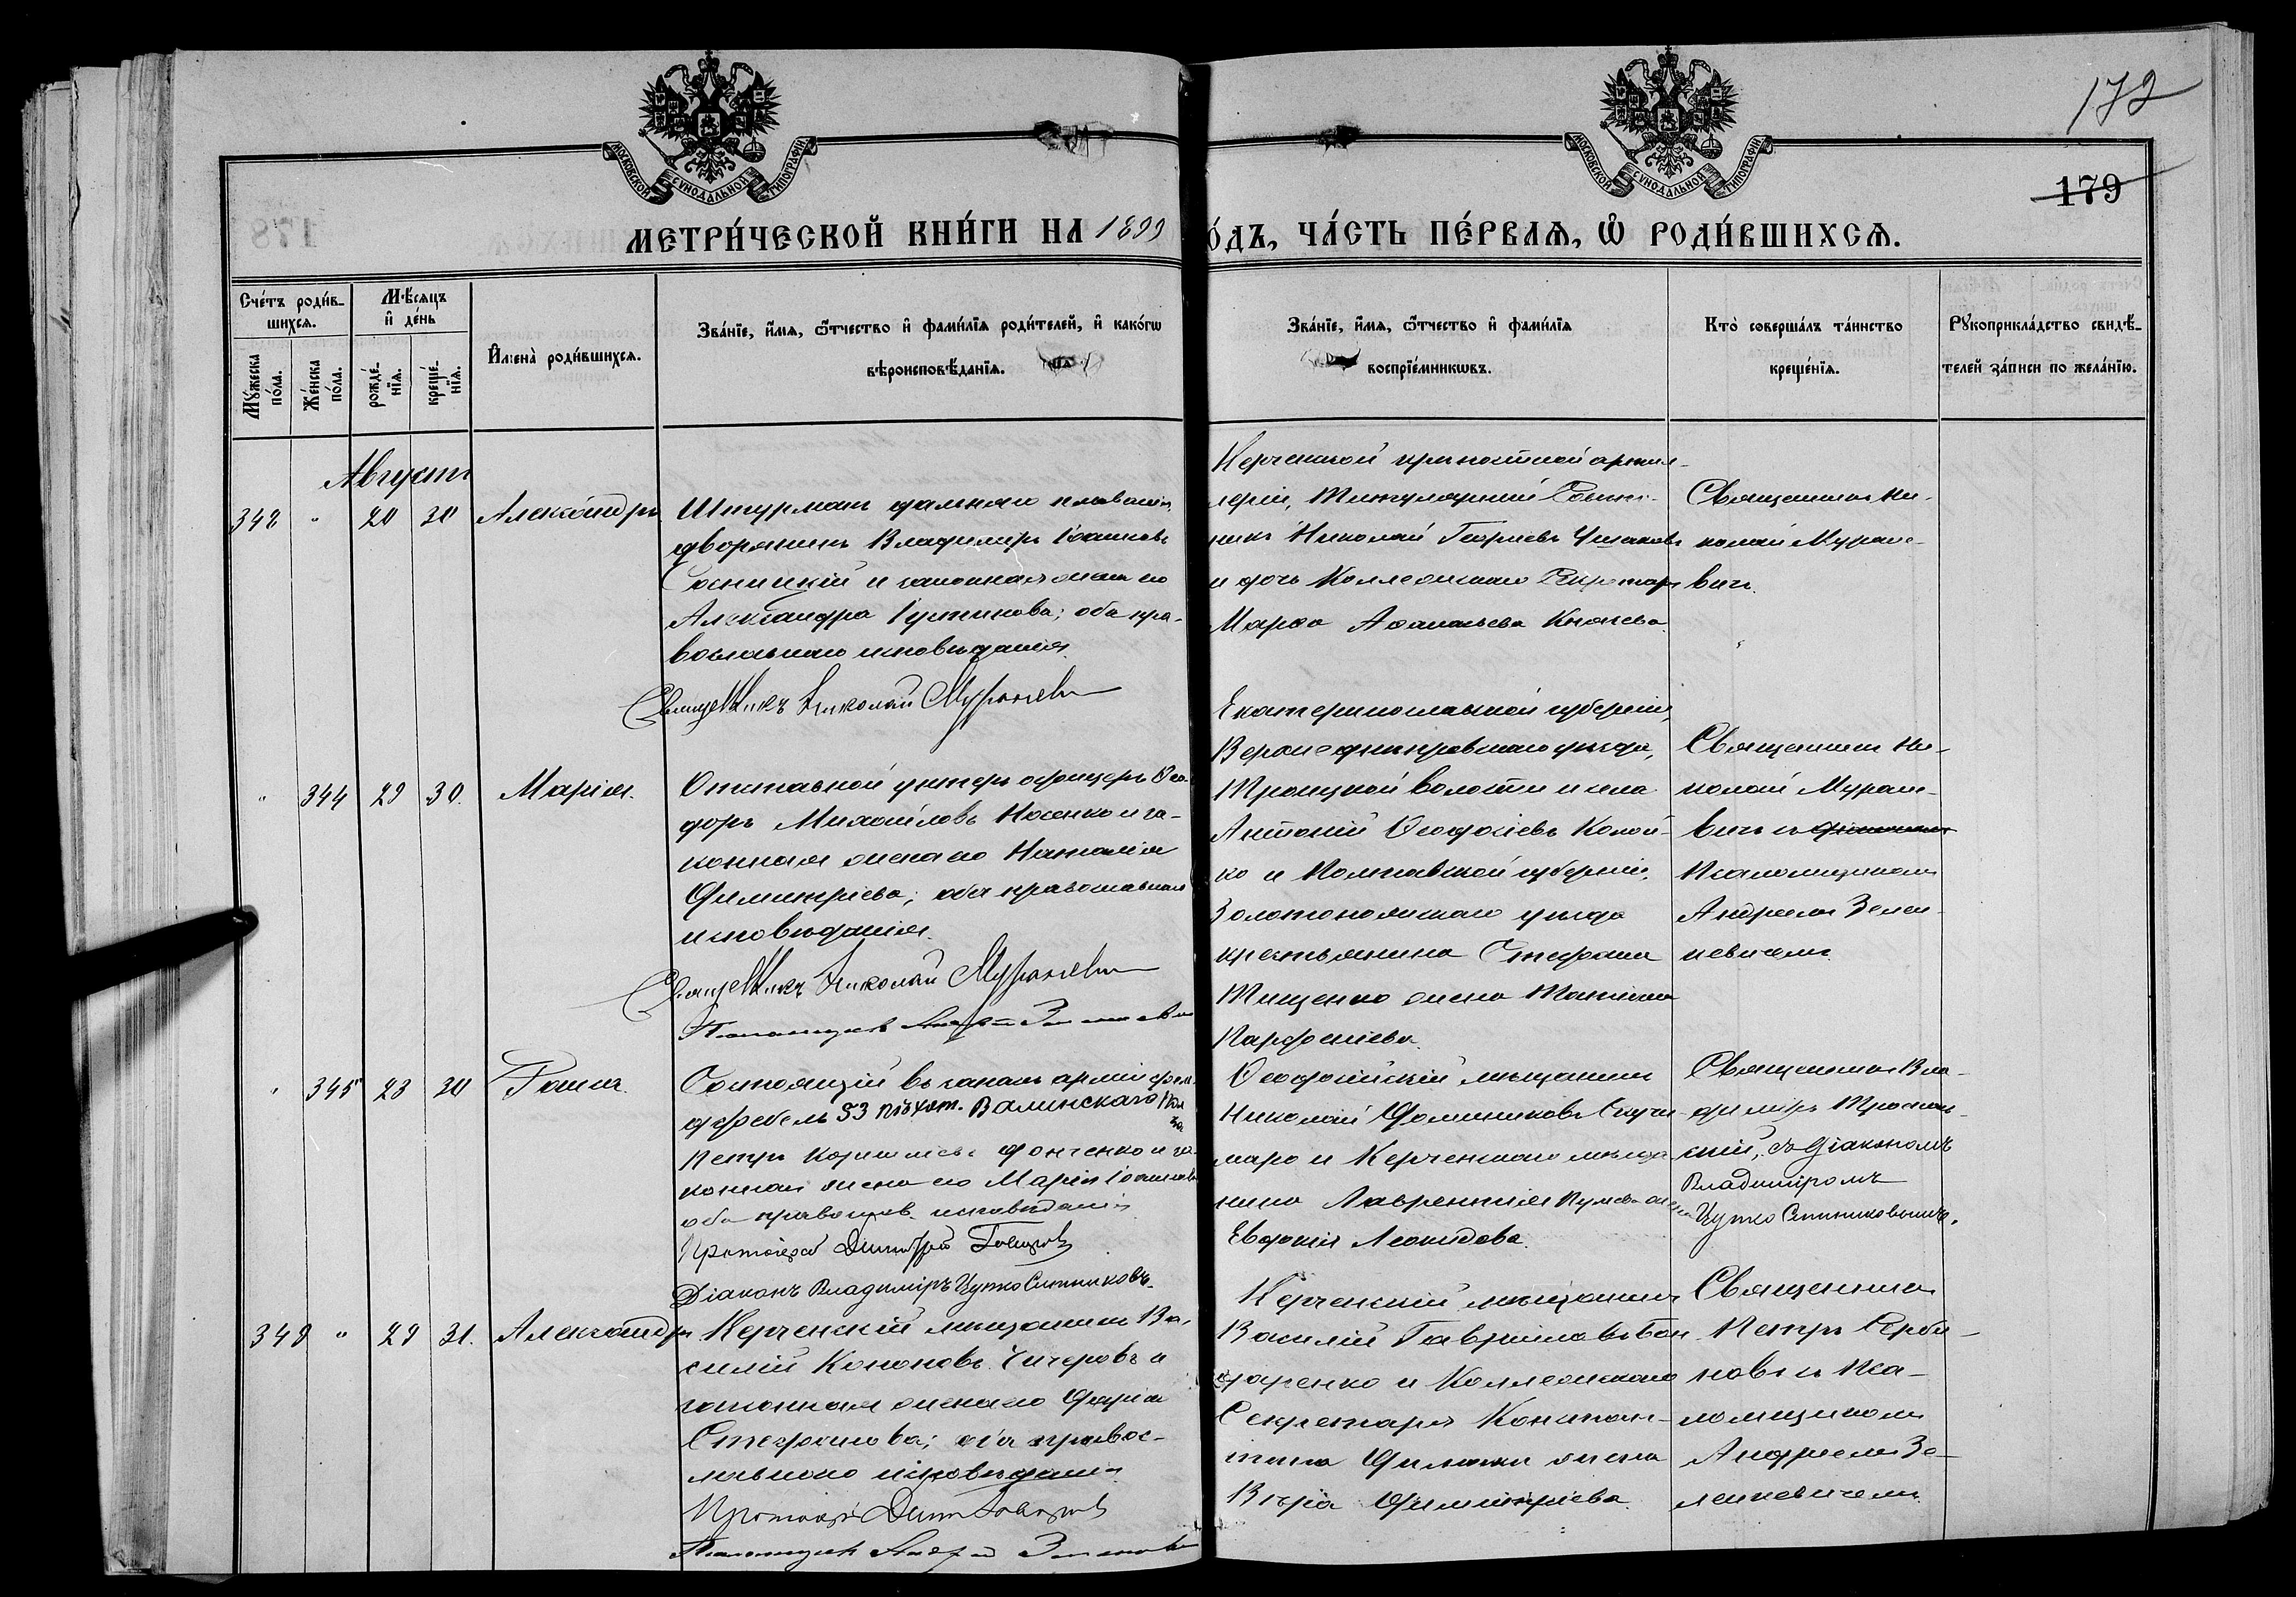 172
МОСКОВСКОЙ СѴНОДАЛЬНОЙ ТИПОГРАФІИ
МОСКОВСКОЙ СѴНОДАЛЬНОЙ ТИПОГРАФІИ
179
МЕТРИ́ЧЕСКОЙ КНИ́ГИ НА 1899
О́ДЪ, ЧА́СТЬ ПЕ́РВАѦ, Ѡ҆ РОДИ́ВШИХСѦ.
Сче́тъ роди́в-
шихсѧ.
Мꙋжеска по́ла.
Же́нска по́ла.
Мѣ́сѧцъ
и҆ де́нь
рожде́-
нїѧ.
креще́-
нїѧ.
И҆мена̀ роди́вшихсѧ.
Зва́нїе, и҆́мѧ, ѻ҆́тчество и҆ фами́лїѧ роди́телей, и҆ како́гѡ
вѣроисповѣ́данїѧ.
Зва́нїе, и҆́мѧ, ѻ҆́тчество и҆ фами́лїѧ
воспрїе́мникѡвъ.
Кто̀ соверша́лъ та́инство
креще́нїѧ.
Рꙋкоприкла́дство свидѣ́-
телей за́писи по жела́нїю.
Августъ
342 " 20 30 Александръ
Штурманъ дальняго плаванія,
дворянинъ Владиміръ Іоанновъ
Сосницкій и законная жена его
Александра Іустинова; оба пра-
вославнаго исповѣданія.
Священникъ Николай Мурашевичъ
Керченской крѣпостной артил-
леріи, Титулярный Совѣт-
никъ Николай Георгіевъ Ушаковъ
и дочь Коллежскаго Секретаря
Марѳа Аѳанасьева Князева.
Священникъ Ни-
колай Мураше-
вичъ.
" 344 29 30. Марія.
Отставной унтеръ офицеръ Ѳео-
доръ Михайловъ Носенко и за-
конная жена его Наталія
Димитріева; оба православнаго
исповѣданія.
Священникъ Николай Мурашевичъ
Псаломщикъ Андрей Зеленкевичъ
Екатеринославской губерніи,
Верхнеднѣпровскаго уѣзда,
Троицкой волости и села
Антоній Ѳеодосіевъ
ко и Полтавской губерніи,
Золотоношскаго уѣзда
крестьянина Стефана
Тищенко жена Татіана
Парфеніева.
Священникъ Ни-
колай Мураше-
вичъ съ
Псаломщикомъ
Андреемъ Зелен-
кевичемъ.
" 345 23 30 Раиса.
Состоящій въ запасѣ арміи фельд-
фебель 53 пѣхот. Волынскаго Полка
Петръ Корниліевъ Донченко и за-
конная жена его Марія Іоаннова
оба правосл. исповѣданія
Протоіерей Димитрій
Діаконъ Владиміръ Цутко Ситниковъ.
Ѳеодосійскій мѣщанинъ
Николай Доминиковъ
и Керченскаго мѣща-
нина Лаврентія жена
Евдокія Леонидова.
Священникъ Вла-
диміръ
скій, съ діакономъ
Владиміромъ
Цутко Ситниковымъ.
348 " 29 31. Александръ
Керченскій мѣщанинъ Ва-
силій Кононовъ Чичеровъ и
законная жена его Дарія
Стефанова; оба правос-
лавнаго исповѣданія
Протоіерей Дим
Псаломщикъ Андрей Зеленкевичъ
Керченскій мѣщанинъ
Василій Гавріиловъ Бон-
даренко и Коллежскаго
Секретаря Констан-
тина жена
Вѣра Димитріева
Священникъ
Петръ Серби-
новъ съ Пса-
ломщикомъ
Андреемъ Зе-
ленкевичемъ.